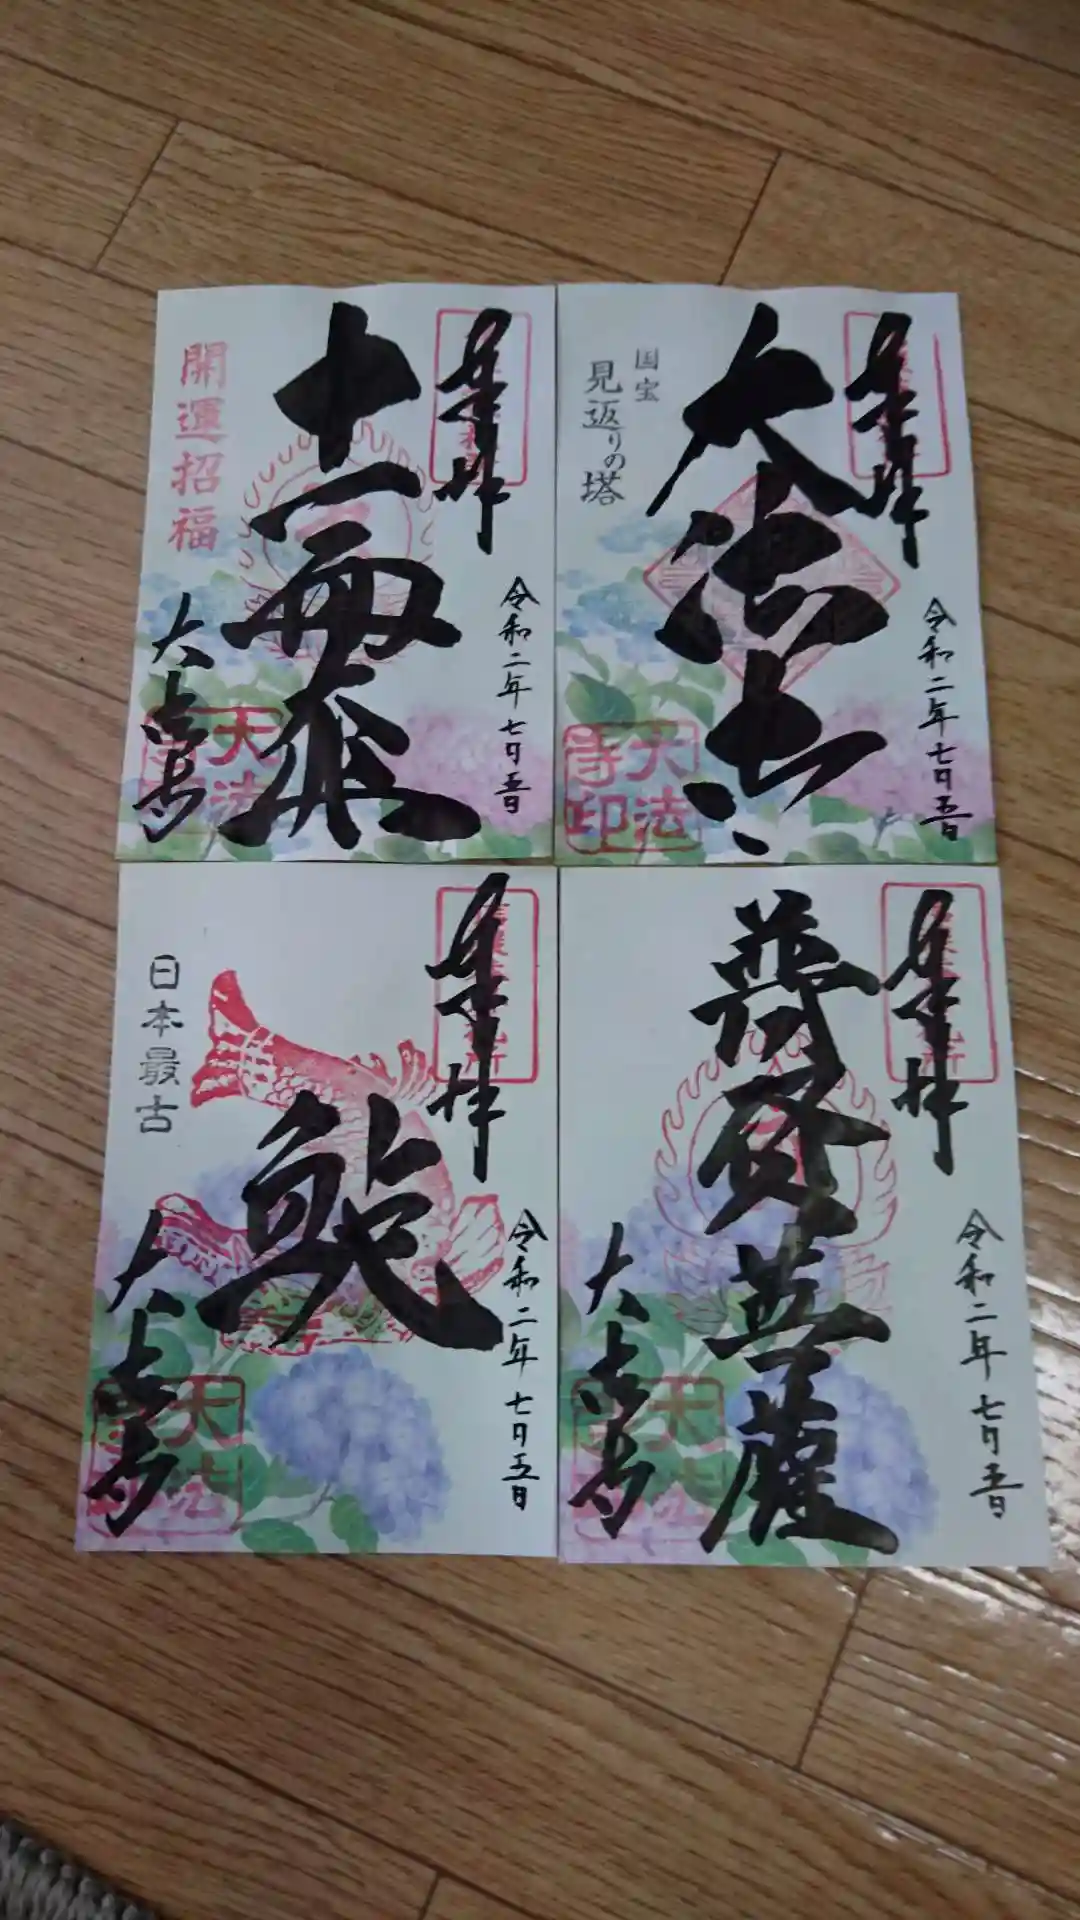 奉拝
十一面尊
開運招福
令和二年七月五日
大法寺
大法寺印
奉拝
大法寺
国宝
見返りの塔
令和二年七月五日
大法寺印
奉拝
鯱
日本最古
令和二年七月五日
大法寺
大法寺印
奉拝
普賢菩薩
令和二年七月五日
大法寺
大法寺印